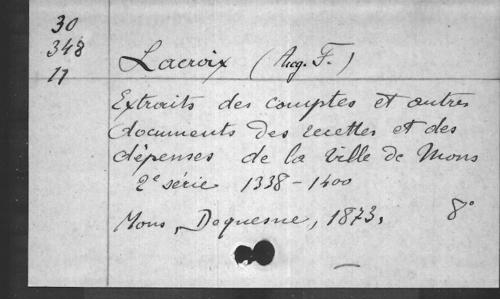 30
348
11
Lacroix (Aug. F.)
Extraits des comptes et autres
documents des recettes et des
dépenses de la ville de Mons
2e série 1338-1400
Mons, Dequesne, 1873. 8°